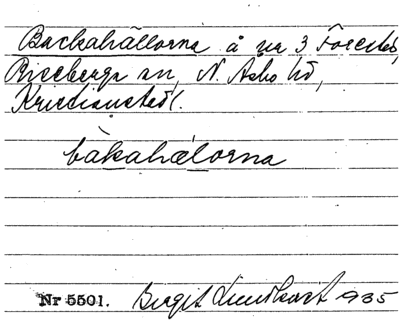 Backahällorna å nr 3 Forestad,
Riseberga sn, N. Åsbo hd,
Kristianst. l.
bàkahælorna
Nr 5501. Birgit Lundkvist 935